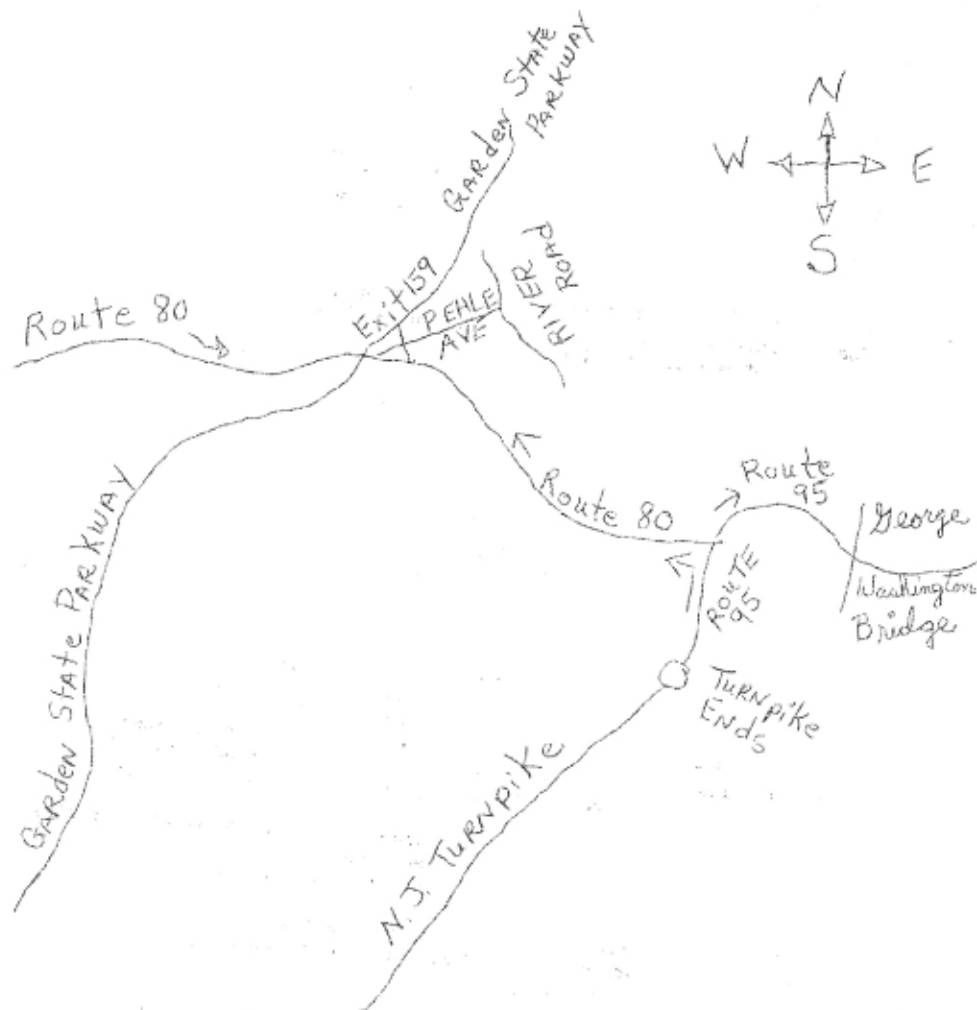 GARden STATE
PARKWAY
N
W E
S
Exit 159
PEHLE
AVE
RIVER
ROAD
Route 80
Route 80
Route
95
George
Washington
Bridge
ROUTE
95
TURNpike
ENds
GARden STATE PARKWAY
N.J. TURNpike